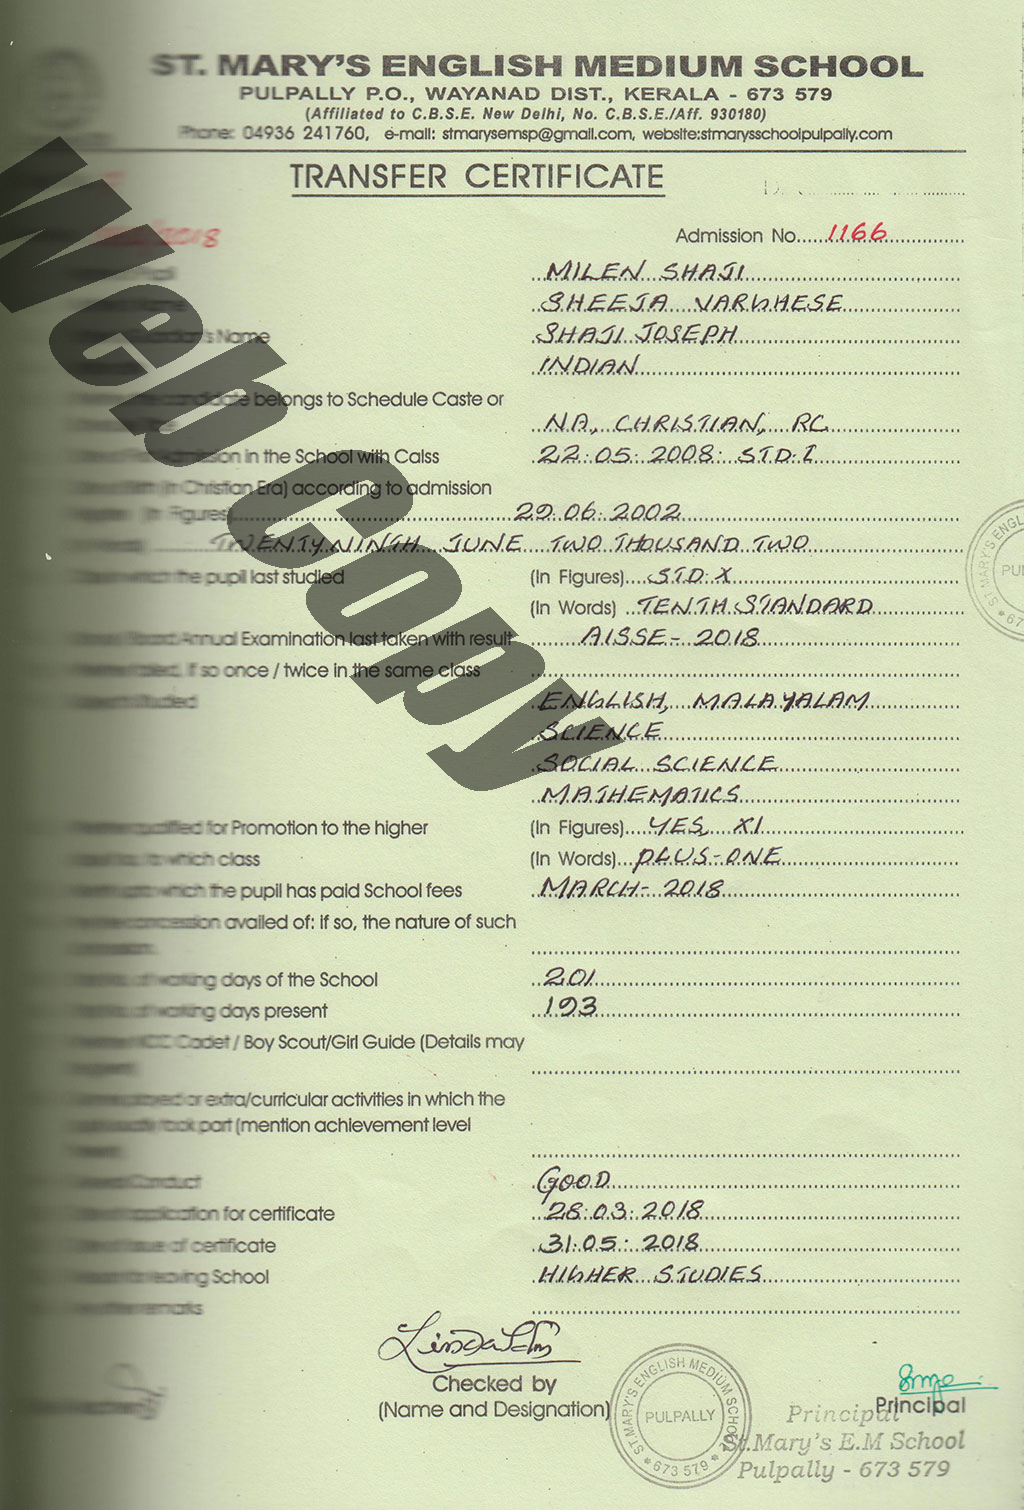 ST. MARY'S ENGLISH MEDIUM SCHOOL
PULPALLY P.O., WAYANAD DIST., KERALA - 673 579
(Affiliated to C.B.S.E. New Delhi, No. C.B.S.E./Aff. 930180)
Phone: 04936 241760, e-mail: stmarysemsp@gmail.com, website:stmarysschoolpulpally.com
TRANSFER CERTIFICATE
/2018 Admission No. 1166
MILEN SHAJI
SHEEJA VARGHESE
Guardian's Name SHAJI JOSEPH
INDIAN
candidate belongs to Schedule Caste or
NA, CHRISTIAN, RC
Admission in the School with Calss 22.05.2008. STD.I
(In Christian Era) according to admission
(In Figures) 29.06.2002
TWENTY NINTH JUNE TWO THOUSAND TWO
which the pupil last studied (In Figures) STD.X
(In Words) TENTH STANDARD
Annual Examination last taken with result AISSE-2018
if so once / twice in the same class
Studied ENGLISH, MALAYALAM
SCIENCE
SOCIAL SCIENCE
MATHEMATICS
qualified for Promotion to the higher (In Figures) YES, XI
to which class (In Words) PLUS-ONE
which the pupil has paid School fees MARCH-2018
concession availed of: if so, the nature of such
working days of the School 201
working days present 193
NCC Cadet / Boy Scout/Girl Guide (Details may
or extra/curricular activities in which the
took part (mention achievement level
Conduct GOOD
application for certificate 28.03.2018
issue of certificate 31.05.2018
leaving School HIGHER STUDIES
remarks
Checked by
(Name and Designation)
Principal
ST. MARY'S ENGLISH MEDIUM SCHOOL
PULPALLY
673 579
Principal
St.Mary's E.M School
Pulpally - 673 579
Web Copy